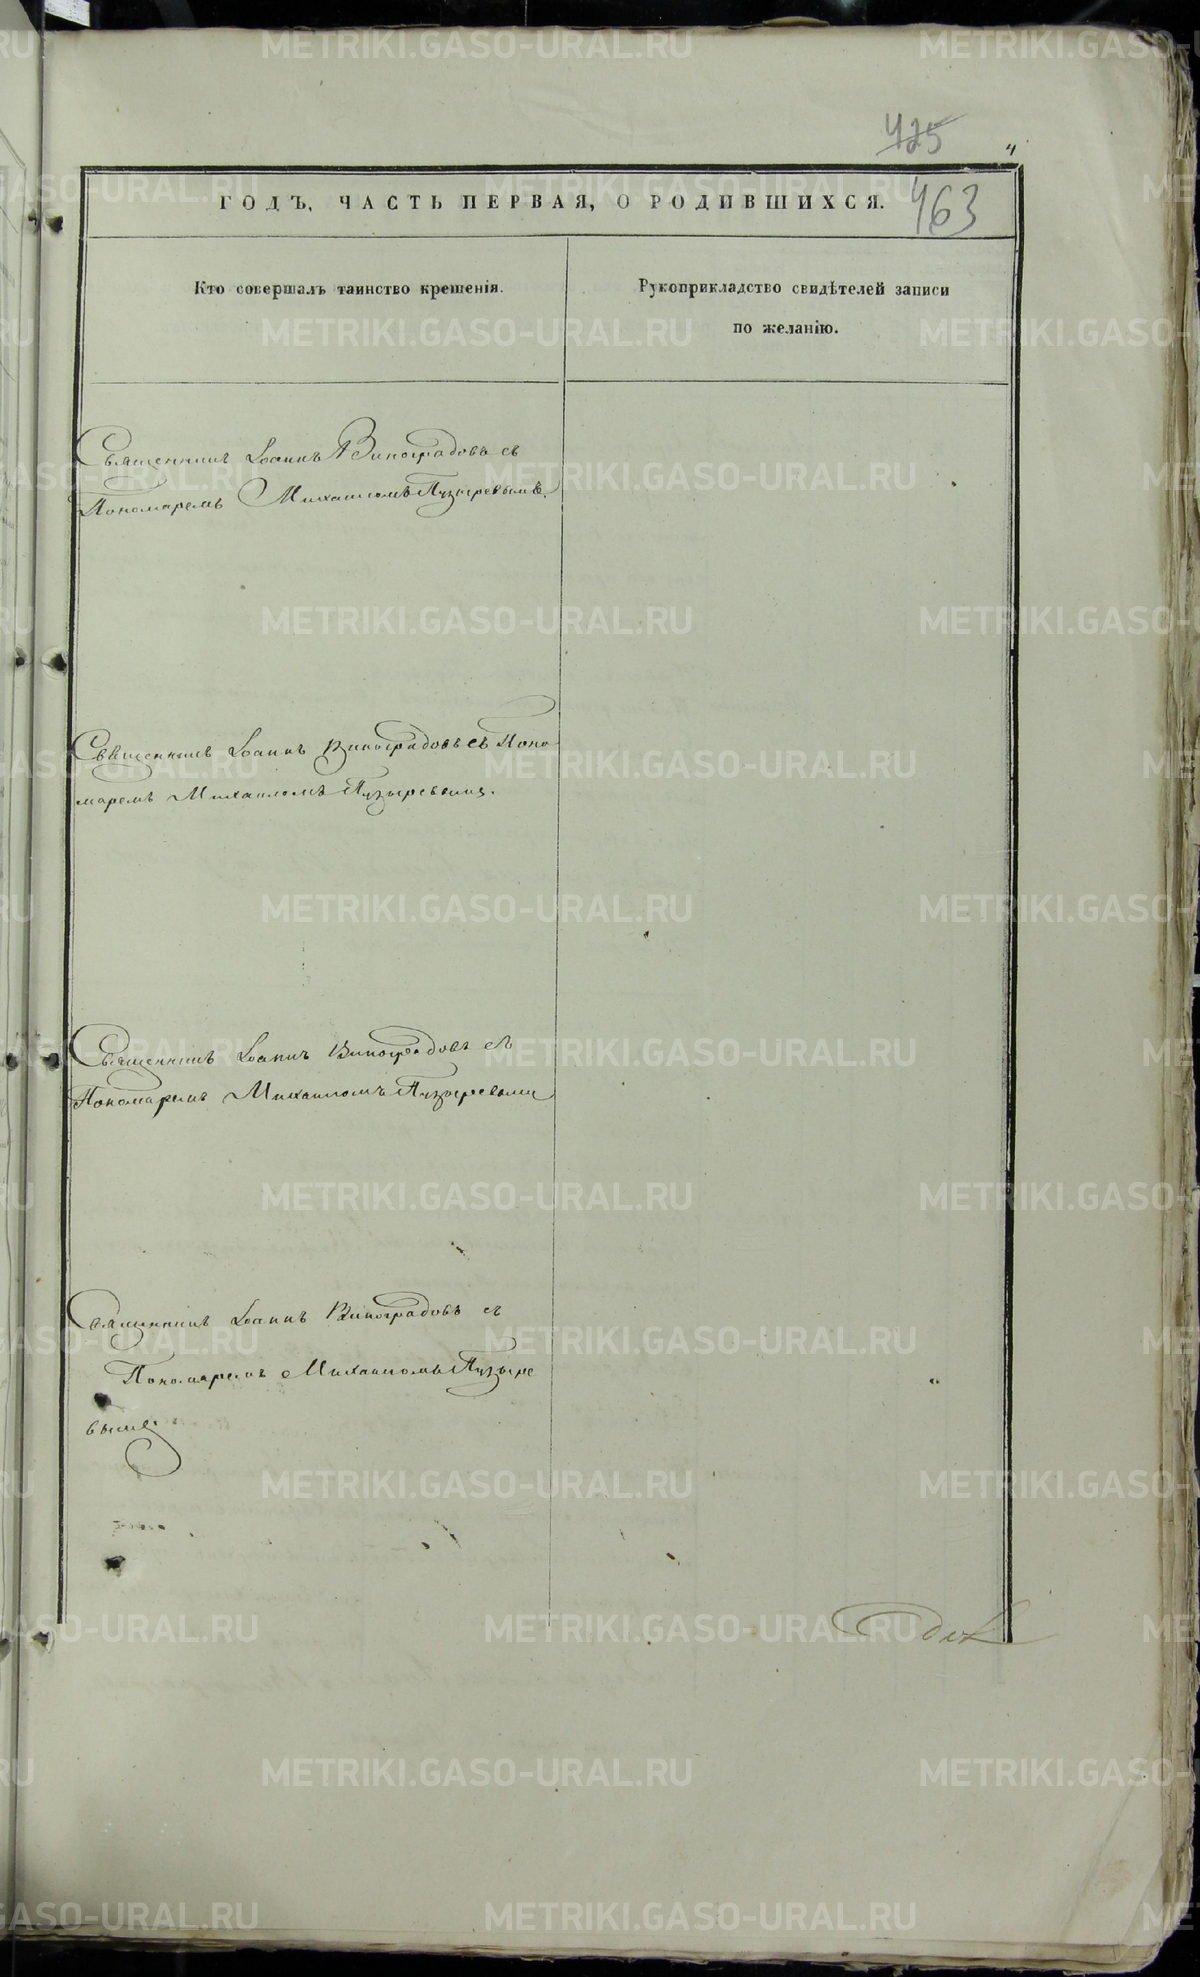 425
4
ГОДЪ, ЧАСТЬ ПЕРВАЯ, О РОДИВШИХСЯ.
463
Кто совершалъ таинство крещенія.
Рукоприкладство свидѣтелей записи
по желанію.
Священникъ Іоаннъ Виноградовъ съ
Пономаремъ Михаиломъ Пузыревымъ.
Священникъ Іоаннъ Виноградовъ съ Поно
маремъ Михаиломъ Пузыревымъ.
Священникъ Іоаннъ Виноградовъ съ
Пономаремъ Михаиломъ Пузыревымъ
Священникъ Іоаннъ Виноградовъ съ
Пономаремъ Михаиломъ Пузыре
вымъ
METRIKI.GASO-URAL.RU